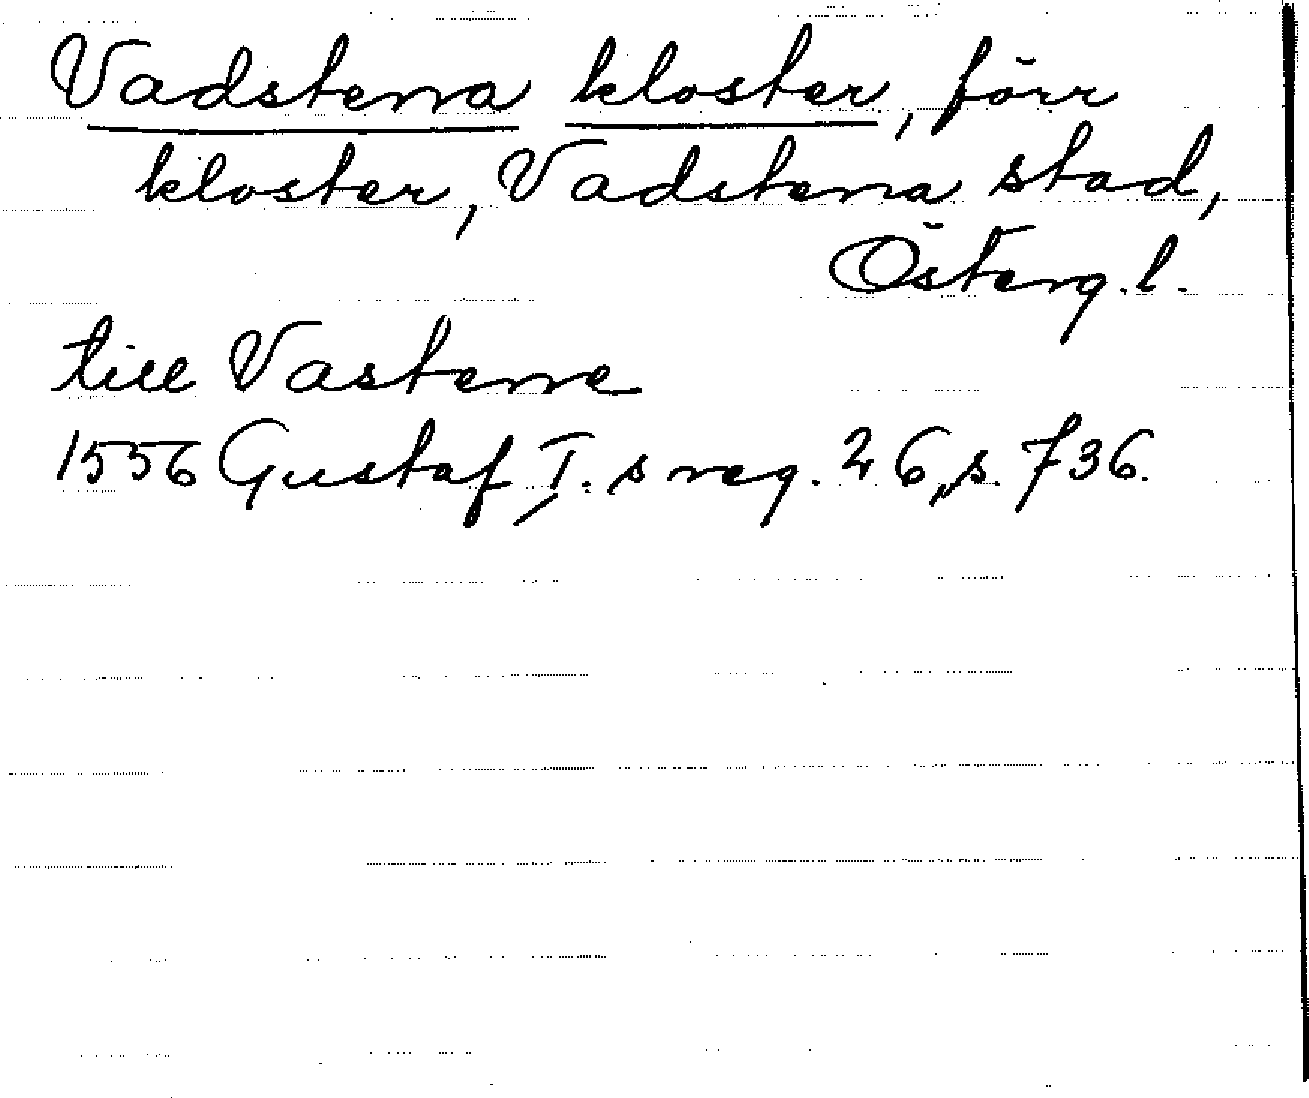 Vadstena kloster, förr
kloster, Vadstena stad,
Österg. l.
till Vastenne
1556 Gustaf I:s reg. 26, s. 736.